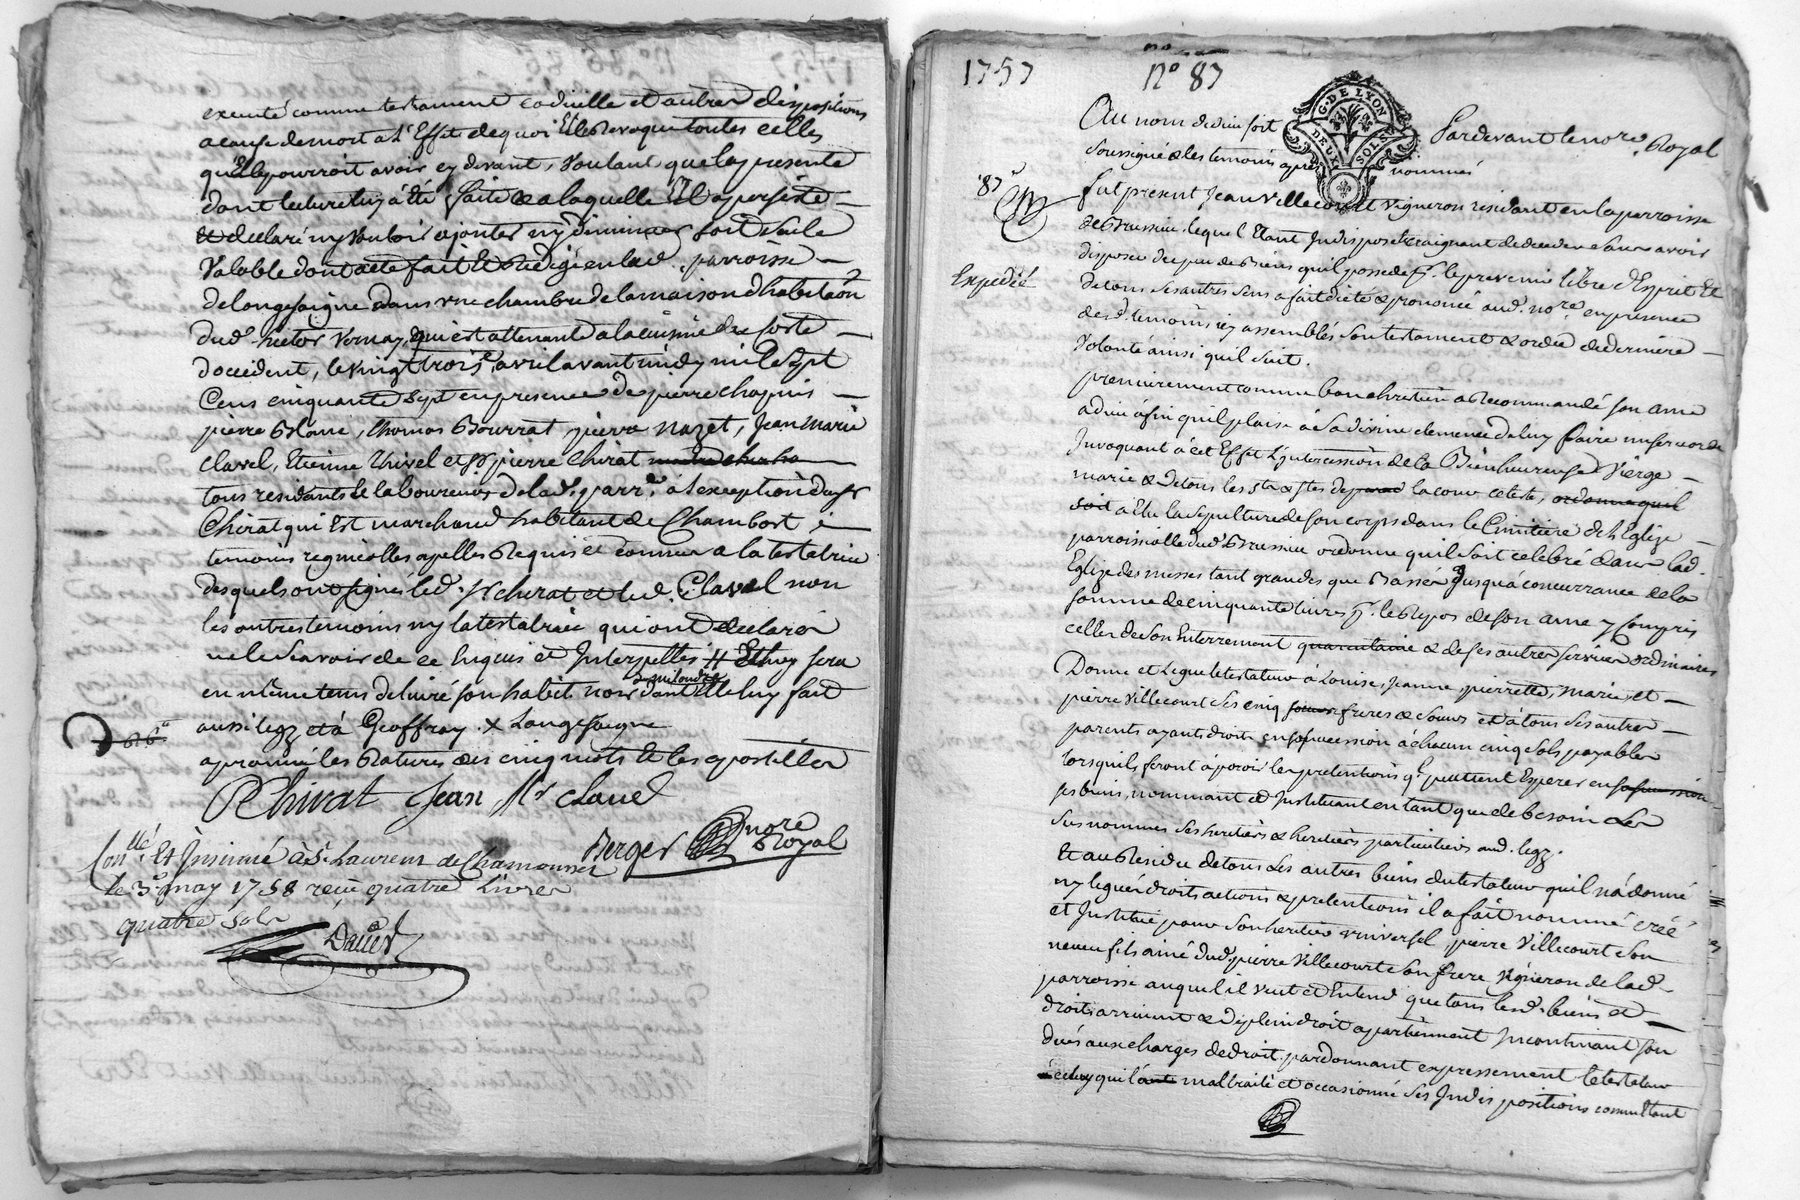 executé comme testament codicille et autres dispositions
a cause de mort a L'Effet de quoi Elle Revoque toutes celles
qu'elle pourroit avoir cy devant, Voulant que la presente
dont lecture luy à été faite & a laquelle Ella persiste
et declaré ny vouloir ajouter ny diminuer soit seule
Valable dont acte fait Et Redigé en lad. parroisse
de longesaigne dans une chambre de la maison d'habitaon
dud. hector Vernay, qui est attenante a la cuisine du costé
d'occident, le vingt trois avril avant midy mil sept
Cens cinquante sept en presence de pierre chapuis
pierre Blanc, thomas Bourrat, pierre nazet, Jean Marie
Clavel, Etienne Thivel et Sr. pierre Chirat
tous residants & laboureurs de lad. parr. à l'exception dud. Sr
Chirat qui Est marchand habitant de Chambost
temoins regnicolles apellés Requis et connus a la testatrice
desquels ont signés led. Sr chirat et led. Clavel non
les autres temoins ny la testatrice qui ont declarés
ne le scavoir de ce Enquis et Interpellés # Et luy sera
en même tems delivré son habit noir dont Elle luy fait
aussi legz et à Geoffray. x Longesaigne
aprouvé les Ratures des cinq mots Et les apostilles
RChirat Jean Mr clavel
Berger nore Royal
Con.llé Et Insinué à St Laurent de Chamousset
le 3e may 1758 reçu quatre Livres
quatre sols
1757 no 87
G. DE LYON
DEUX SOLS
Au nom de dieu soit Pardevant le nore. Royal
soussigné & les temoins après nommés
87
fut present Jean Villecourt vigneron residant en la parroisse
de Brussieu, lequel Etant Indisposé & craignant de deceder sans avoir
disposé du peu de Biens qu'il possede pr. le prevenir libre d'Esprit Et
Expedié
de tous ses autres sens a fait dicté & prononcé aud. nore. en presence
des d. temoins icy assemblés son testament & ordre de derniere
Volonté ainsi qu'il suit.
premierement comme bon chretien a Recommandé son ame
a dieu afin qu'il plaise à Sa divine clemence de luy faire misericorde
Invoquant à cet Effet L'intercession de la Bienheureuse Vierge
marie & de tous les Sts & Stes de la cour celeste, ordonne quil
soit a Elu la Sepulture de son corps dans le Cimitiere de L'Eglise
parroissialle dud. Brussieu ordonne qu'il soit celebré dans lad.
Eglize des messes tant grandes que Basses Jusqu'à concurrance de la
somme de cinquante livres pr. le Repos de son ame y Compris
celles de son Enterrement quarantaine & de ses autres services ordinaires
Donne et Legue le testateur à Louise, Jeanne, pierrette, Marie et
pierre Villecourt ses cinq freres & soeurs et à tous ses autres
parents ayants droits en sa succession à chacun cinq sols payables
lorsqu'ils feront à paroir les pretentions qu'ils peuvent Esperer en sa succession
ses biens, nommant et Instituant en tant que de besoin les
sus nommés ses heritiers & heritiers particuliers aud. legz.
Et au Residu de tous les autres biens du testateur qu'il n'à donné
ny legué droits actions & pretentions il a fait nommé créé
et Institué pour Son heritier universel, pierre Villecourt son
neveu fils ainé dud. pierre Villecourt son frere vigneron de lad.
parroisse auquel il veut et Entend que tous lesd. biens et
droits arrivent & de plein droit apartiennent Incontinant son
decès aux charges de droit. pardonnant expressement le testateur
à celuy qui l'a maltraité et occasionné ses Indispositions